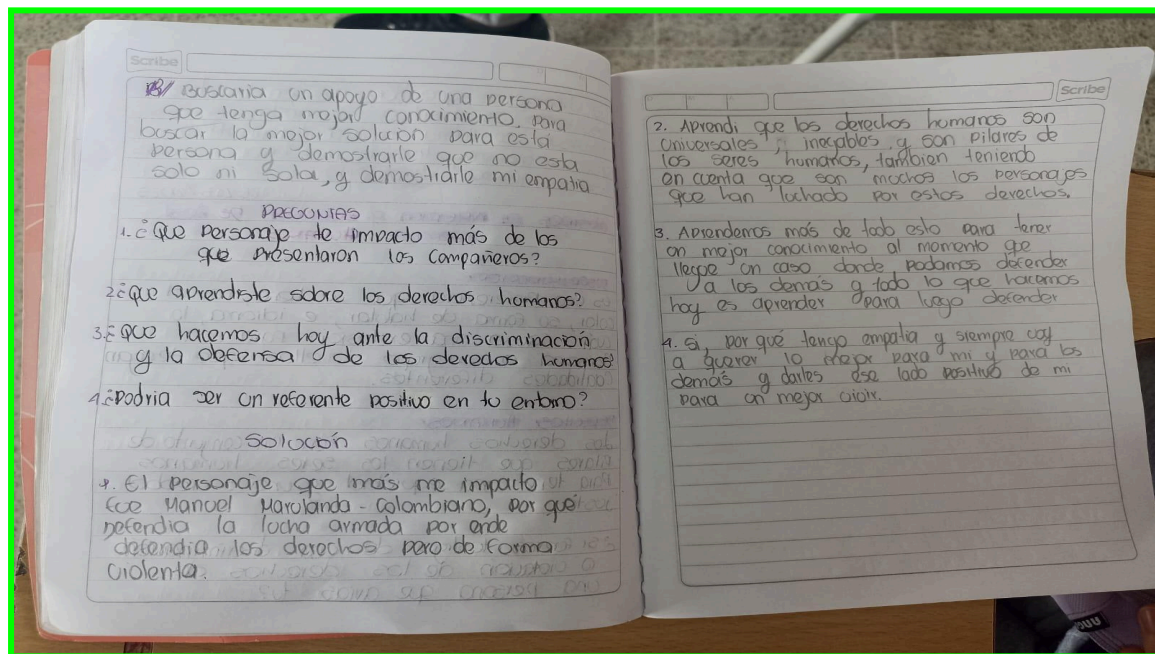 Scribe
B/ Buscaria un apoyo de una persona
que tenga mejor conocimiento para
buscar la mejor solucion para esta
persona y demostrarle que no esta
solo ni sola, y demostrarle mi empatia
PREGUNTAS
1. ¿Que personaje te impacto más de los
que presentaron los compañeros?
2 ¿que aprendiste sobre los derechos homanos?
3. ¿Que hacemos hoy ante la discriminación
y la defensa de los derechos humanos?
4 ¿podria ser un referente positivo en tu entorno?
Solución
1. El personaje que más me impacto
fue Manuel Marulanda - Colombiano, por que
defendia la lucha armada por ende
defendia los derechos pero de forma
violenta.
Scribe
2. Aprendi que los derechos humanos son
universales, inegables, y son pilares de
los seres humanos, tambien teniendo
en cuenta que son muchos los personajes
que han luchado por estos derechos.
3. Aprendemos más de todo esto para tener
un mejor conocimiento al momento que
llegue un caso donde podamos defender
a los demás y todo lo que hacemos
hoy es aprender para luego defender
4. si, por qué tengo empatia y siempre voy
a querer lo mejor para mi y para los
demás y darles ese lado positivo de mi
para un mejor vivir.